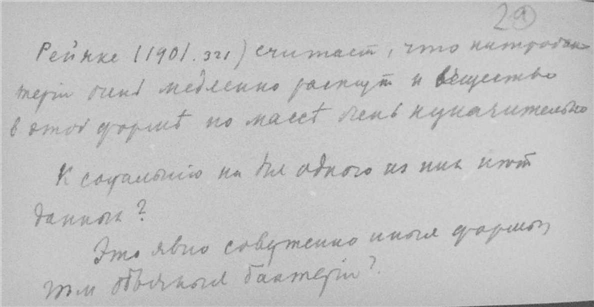 29
Рейнке (1901. 321) считает, что нитробак-
терии очень медленно растут и вещество
в этой формѣ по массѣ очень незначительно
К сожалѣнію ни для одного из них нѣт
данных?
Это явно совершенно иныя формы,
чѣм обычныя бактеріи?